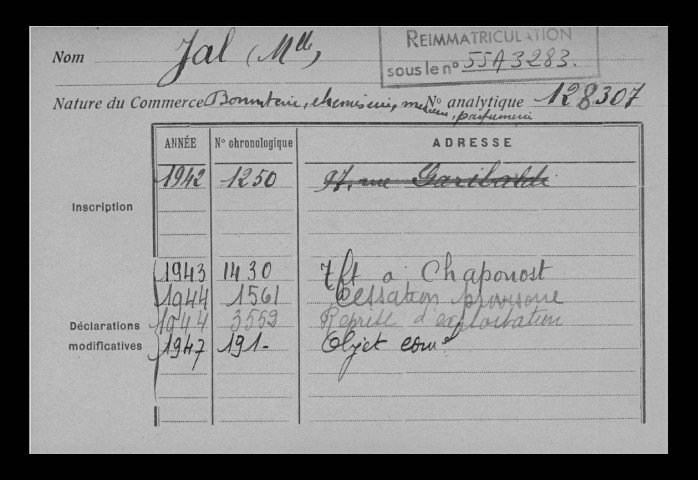 Nom Jal (Mlle)
REIMMATRICULATION
sous le n° 55A3283.
Nature du Commerce Bonneterie, chemiserie, mercerie, parfumerie
N° analytique 128307
ANNÉE N° chronologique ADRESSE
1942 1250 97, rue Garibaldi
Inscription
1943 1430 Tft a Chaponost
1944 1561 Cessation provisoire
Déclarations 1944 3559 Reprise d'exploitation
modificatives 1947 191- Objet comel